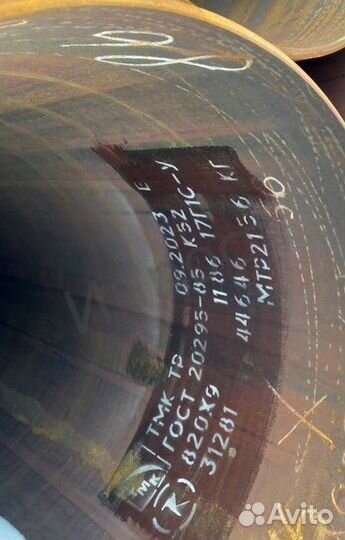 ТМК / ТМК ТВ 09.2023 Е
(К) ГОСТ 20295-85 К52
820Х9 1186 17Г1С-У
31281 44646 КГ
МТР2156
30
Avito